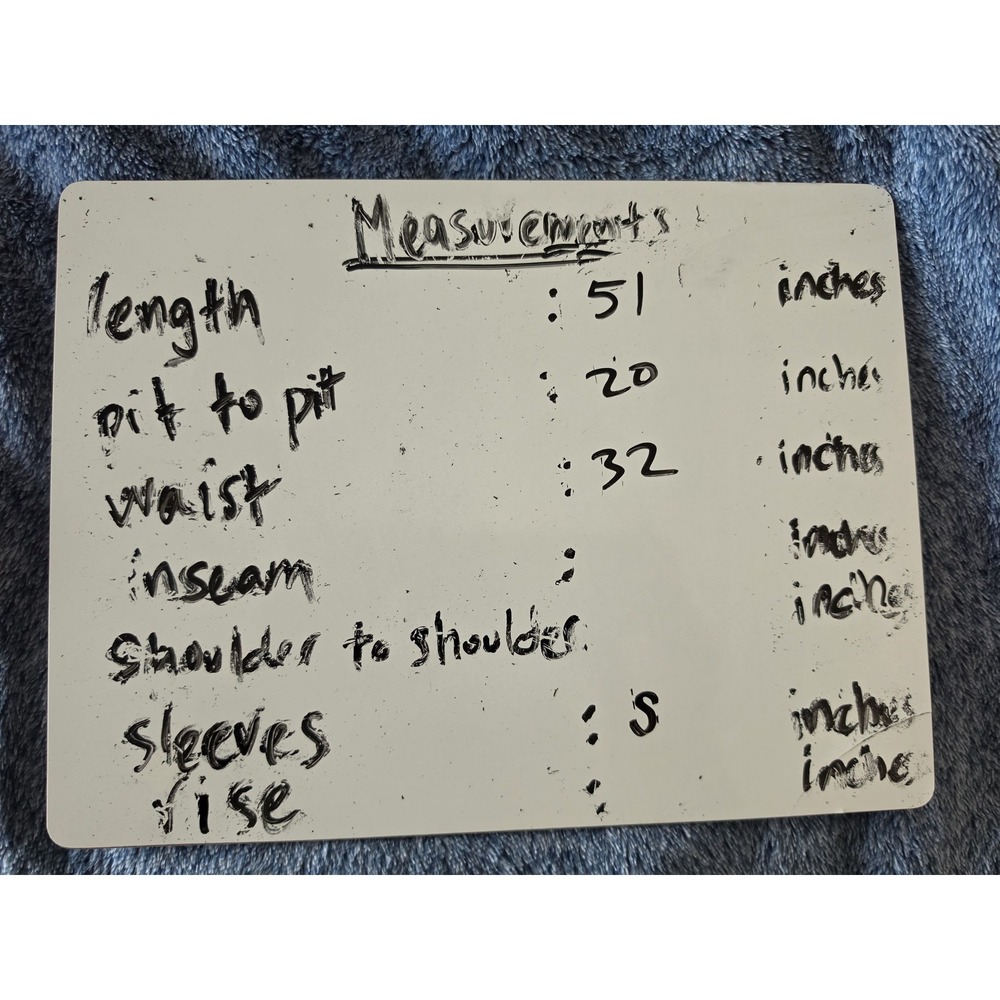 Measurements
length : 51 inches
pit to pit : 20 inches
waist : 32 inches
inseam : inches
shoulder to shoulder inches
sleeves : S inches
rise : inches